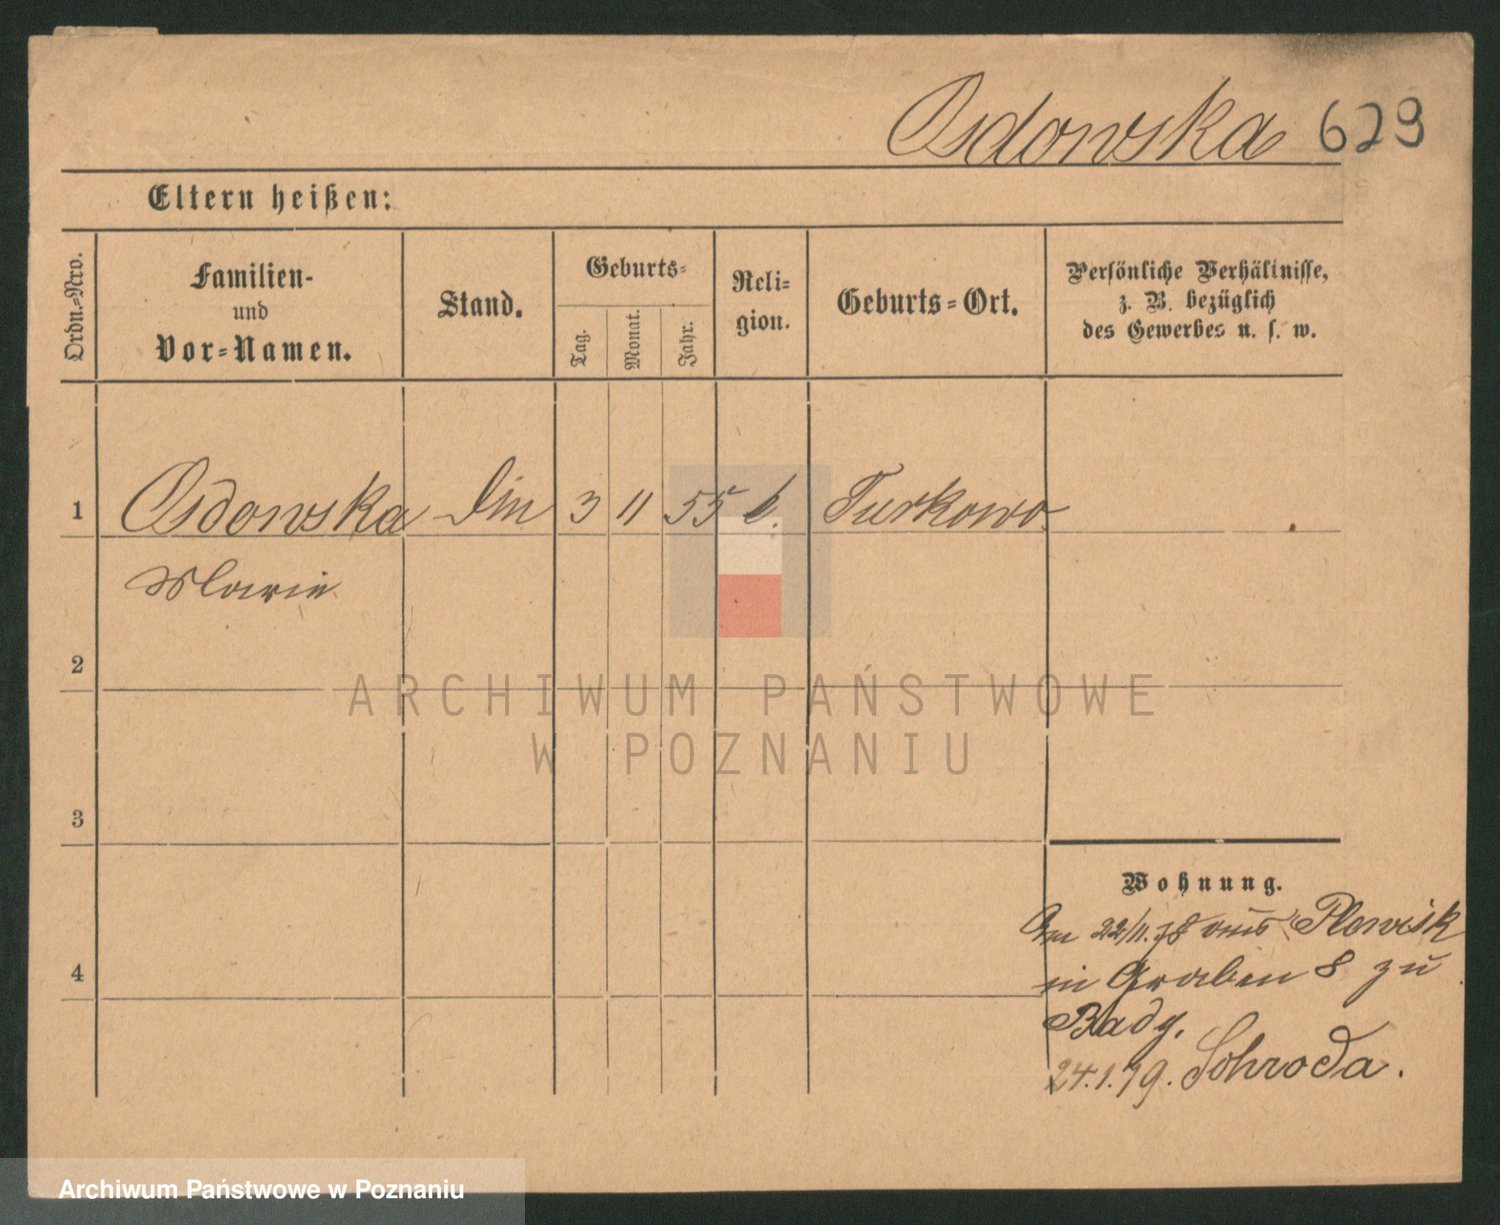 Osdowska 629
Eltern heißen:
Ordn.-Nro.
Familien-
und
Vor-Namen.
Stand.
Geburts-
Tag.
Monat.
Jahr.
Reli-
gion.
Geburts-Ort.
Persönliche Verhältnisse,
z. B. bezüglich
des Gewerbes u. s. w.
1 Osdowska Din 3 11 55 k. Turkowo
Marie
2
ARCHIWUM PAŃSTWOWE
W POZNANIU
3
Wohnung.
Am 22/11.78 aus Plewisk
in Graben 8 zu
Badg.
4
24.1.79. Schroda.
Archiwum Państwowe w Poznaniu